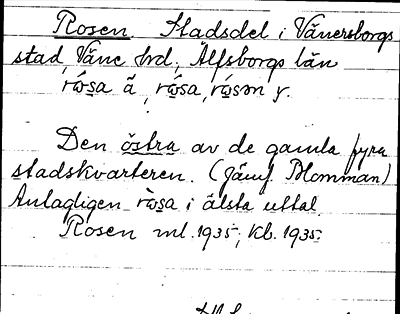 Rosen. Stadsdel i Vänersborgs
stad, Väne hrd. Älfsborgs län
rωsa ä, rωsa, rωsən y.
Den östra av de gamla fyra
stadskvarteren. (Jämf. Blomman)
Antagligen rωsa i älsta uttal.
Rosen ml. 1935; kb. 1935